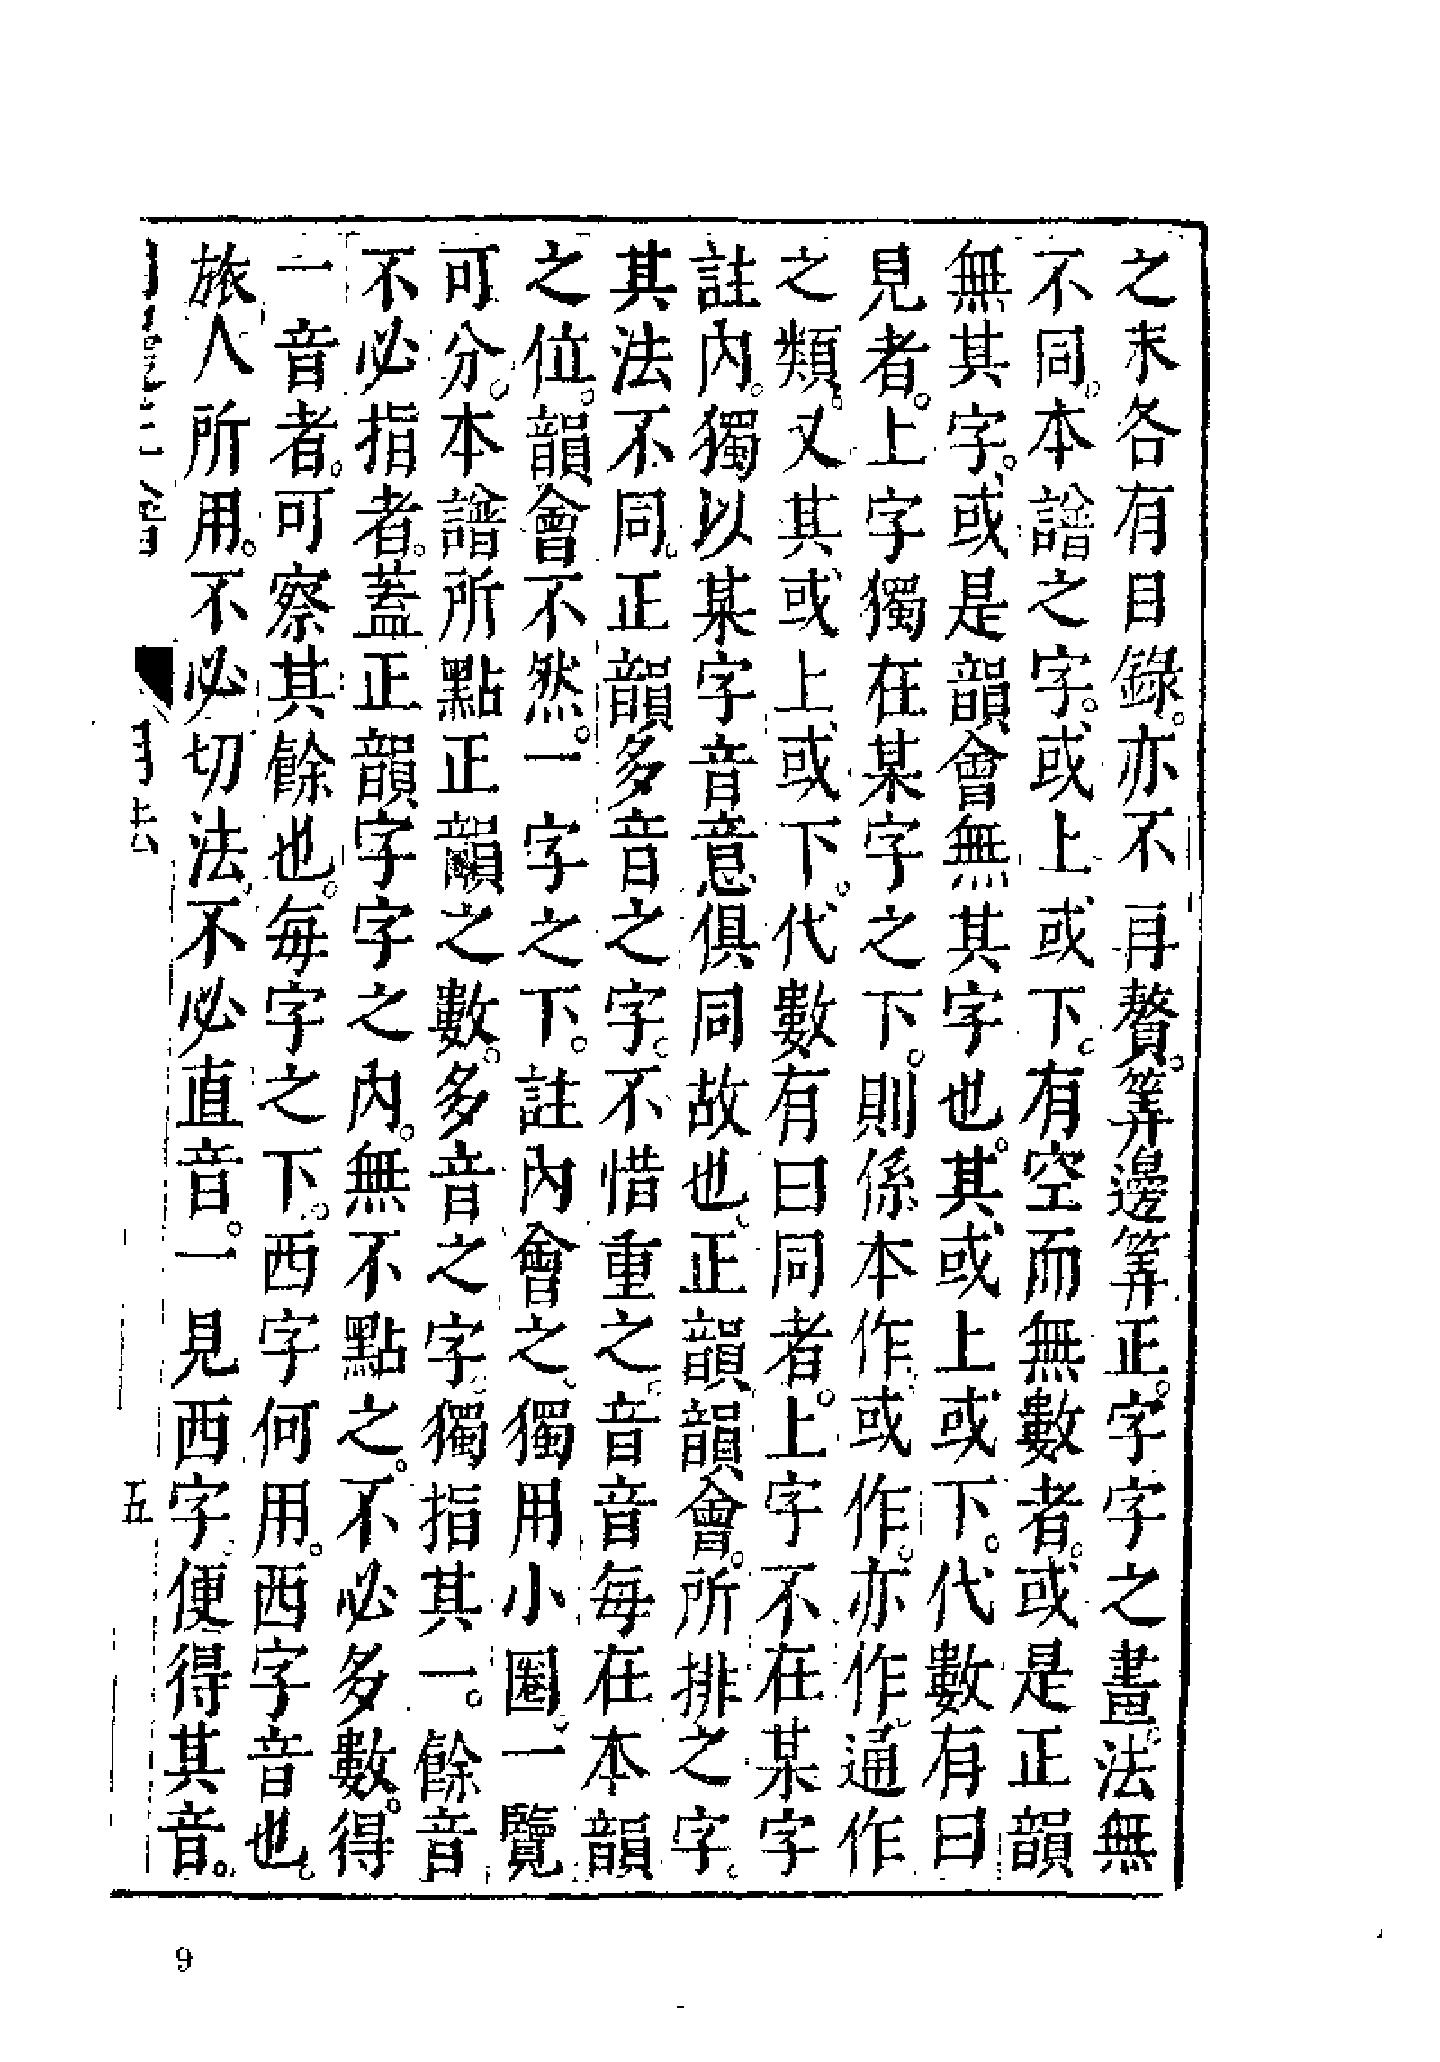 之末各有目錄。亦不再贅。筭邊筭正。字字之畫。法無
不同。本譜之字。或上或下。有空而無數者。或是正韻
無其字。或是韻會無其字也。其或上或下。代數有曰
見者。上字獨在某字之下。則係本作或作。亦作通作
之類。又其或上或下。代數有曰同者。上字不在某字
註內。獨以某字音意俱同故也。正韻韻會。所排之字。
其法不同。正韻多音之字。不惜重之。音音每在本韻
之位。韻會不然。一字之下。註內會之。獨用小圈。一覽
可分。本譜所點正韻之數。多音之字。獨指其一。餘音
不必指者。蓋正韻字字之內。無不點之。不必多數。得
一音者。可察其餘也。每字之下。西字何用。西字音也。
旅人所用。不必切法。不必直音。一見西字。便得其音。
用法
五
9